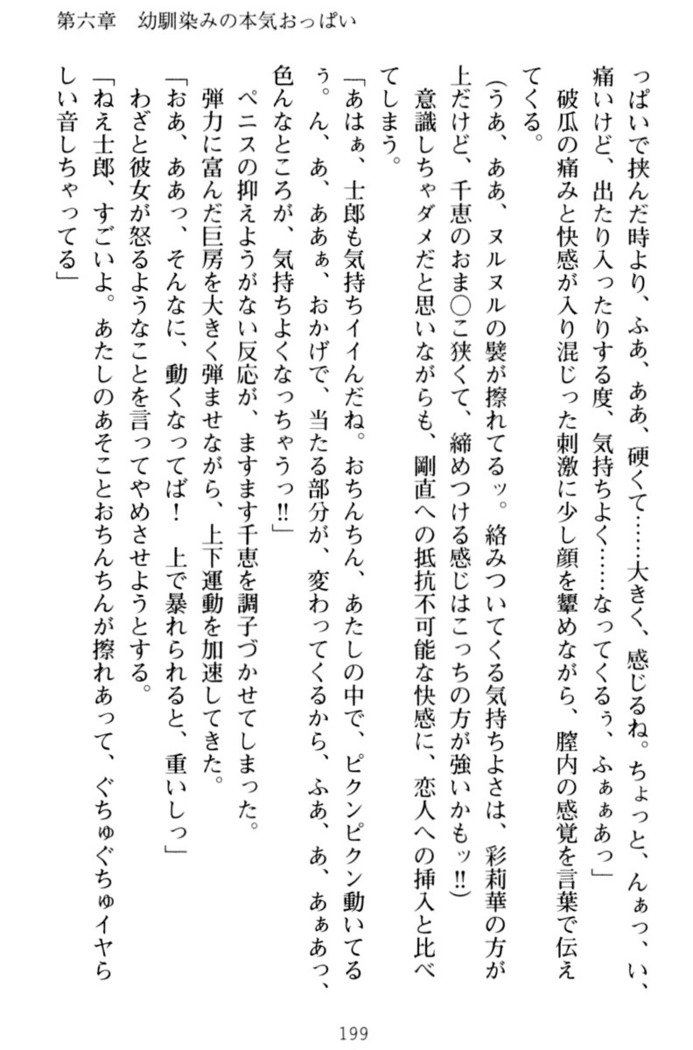 第六章　幼馴染みの本気おっぱい
っぱいで挟んだ時より、ふあ、ああ、硬くて……大きく、感じるね。ちょっと、んぁっ、い、
痛いけど、出たり入ったりする度、気持ちよく……なってくるぅ、ふぁぁあっ」
　破瓜の痛みと快感が入り混じった刺激に少し顔を顰めながら、膣内の感覚を言葉で伝え
てくる。
（うあ、ああ、ヌルヌルの襞が擦れてるッ。絡みついてくる気持ちよさは、彩莉華の方が
上だけど、千恵のおま〇こ狭くて、締めつける感じはこっちの方が強いかもッ‼）
　意識しちゃダメだと思いながらも、剛直への抵抗不可能な快感に、恋人への挿入と比べ
てしまう。
「あはぁ、士郎も気持ちイイんだね。おちんちん、あたしの中で、ピクンピクン動いてる
ぅ。ん、あ、ああぁ、おかげで、当たる部分が、変わってくるから、ふあ、あ、あぁあっ、
色んなところが、気持ちよくなっちゃうっ‼」
　ペニスの抑えようがない反応が、ますます千恵を調子づかせてしまった。
　弾力に富んだ巨房を大きく弾ませながら、上下運動を加速してきた。
「おあ、ああっ、そんなに、動くなってば！　上で暴れられると、重いしっ」
　わざと彼女が怒るようなことを言ってやめさせようとする。
「ねえ士郎、すごいよ。あたしのあそことおちんちんが擦れあって、ぐちゅぐちゅイヤら
しい音しちゃってる」
199